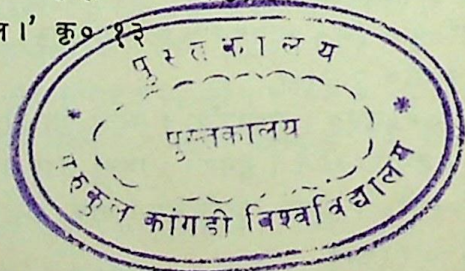 न ।’ कृ० १३
पुस्तकालय
पुस्तकालय
गुरुकुल कांगडी विश्वविद्यालय